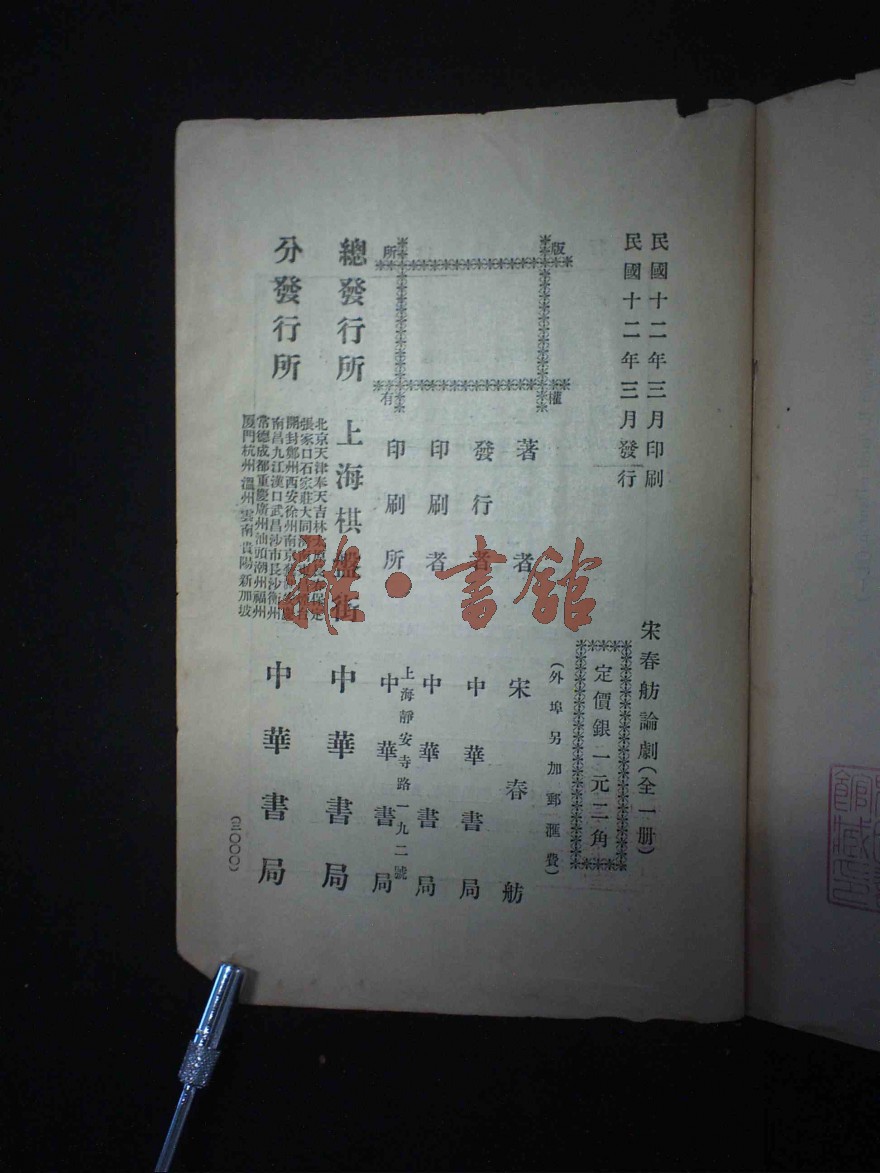 民國十二年三月印刷
民國十二年三月發行
宋春舫論劇(全一册)
定價銀一元二角
(外埠另加郵滙費)
版權所有
著者 宋春舫
發行者 中華書局
印刷者 中華書局
上海靜安寺路一九二號
印刷所 中華書局
總發行所 上海棋盤街 中華書局
分發行所
北京天津奉天吉林
張家口石家莊大同
開封鄭州西安徐州南京
南昌九江漢口武昌沙市長沙衡州
常德成都重慶廣州汕頭潮州福州
厦門杭州溫州雲南貴陽新加坡
中華書局
雜·書館